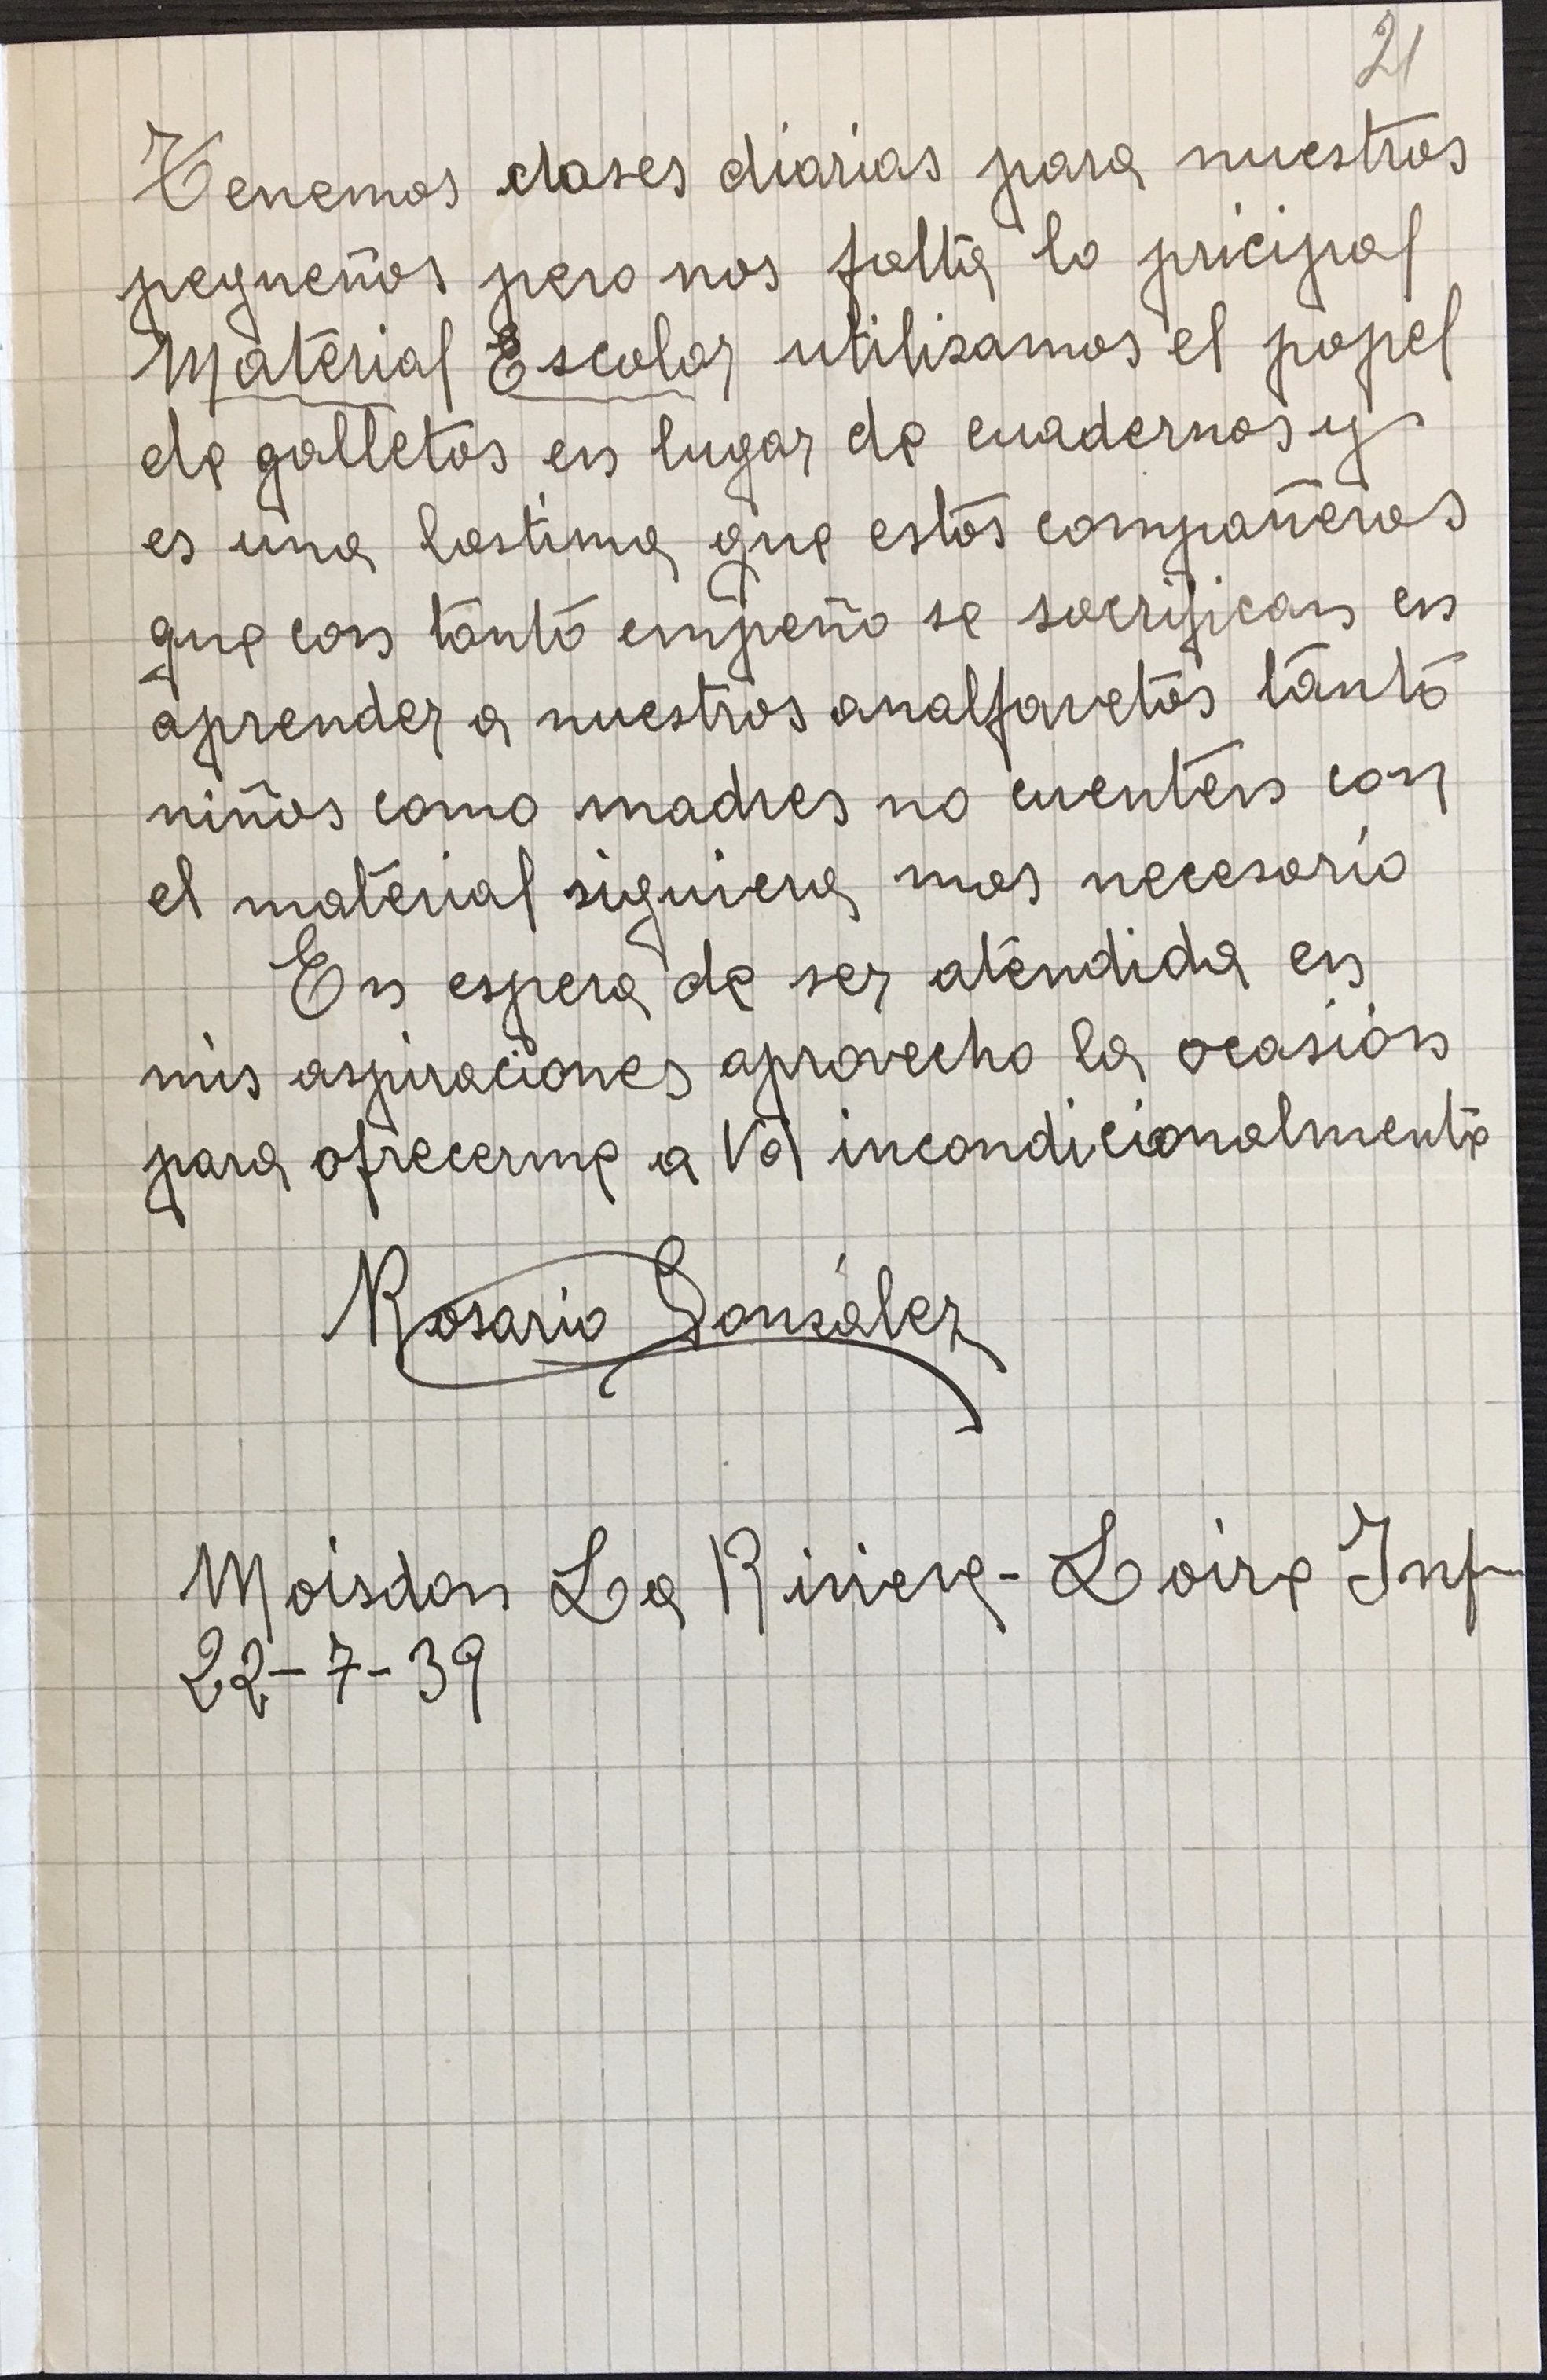 21
Tenemos clases diarias para nuestros
pequeños pero nos falta lo pricipal
Material Escolar utilizamos el papel
de galletas en lugar de cuadernos y
es una lastima que estos compañeros
que con tanto empeño se sacrifican en
aprender a nuestros analfavetos tanto
niños como madres no cuenten con
el material siquiera mas necesario
En espera de ser atendida en
mis aspiraciones aprovecho la ocasión
para ofrecerme a Vd incondicionalmente
Rosario González
Moisdon La Riviera - Loire Inf
22-7-39